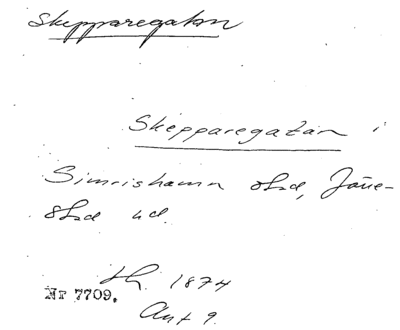 Skepparegatan
Skepparegatan i
Simrishamn stad, Järre-
stad hd.
Lh. 1874
Nr 7709.
Ant 9.